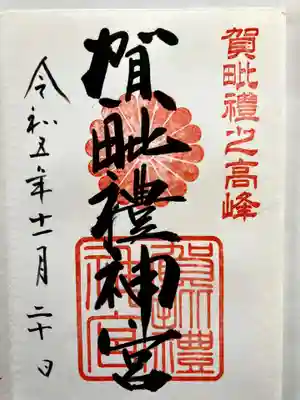 賀毗禮之高峰
賀毗禮神宮
令和五年十一月二十日